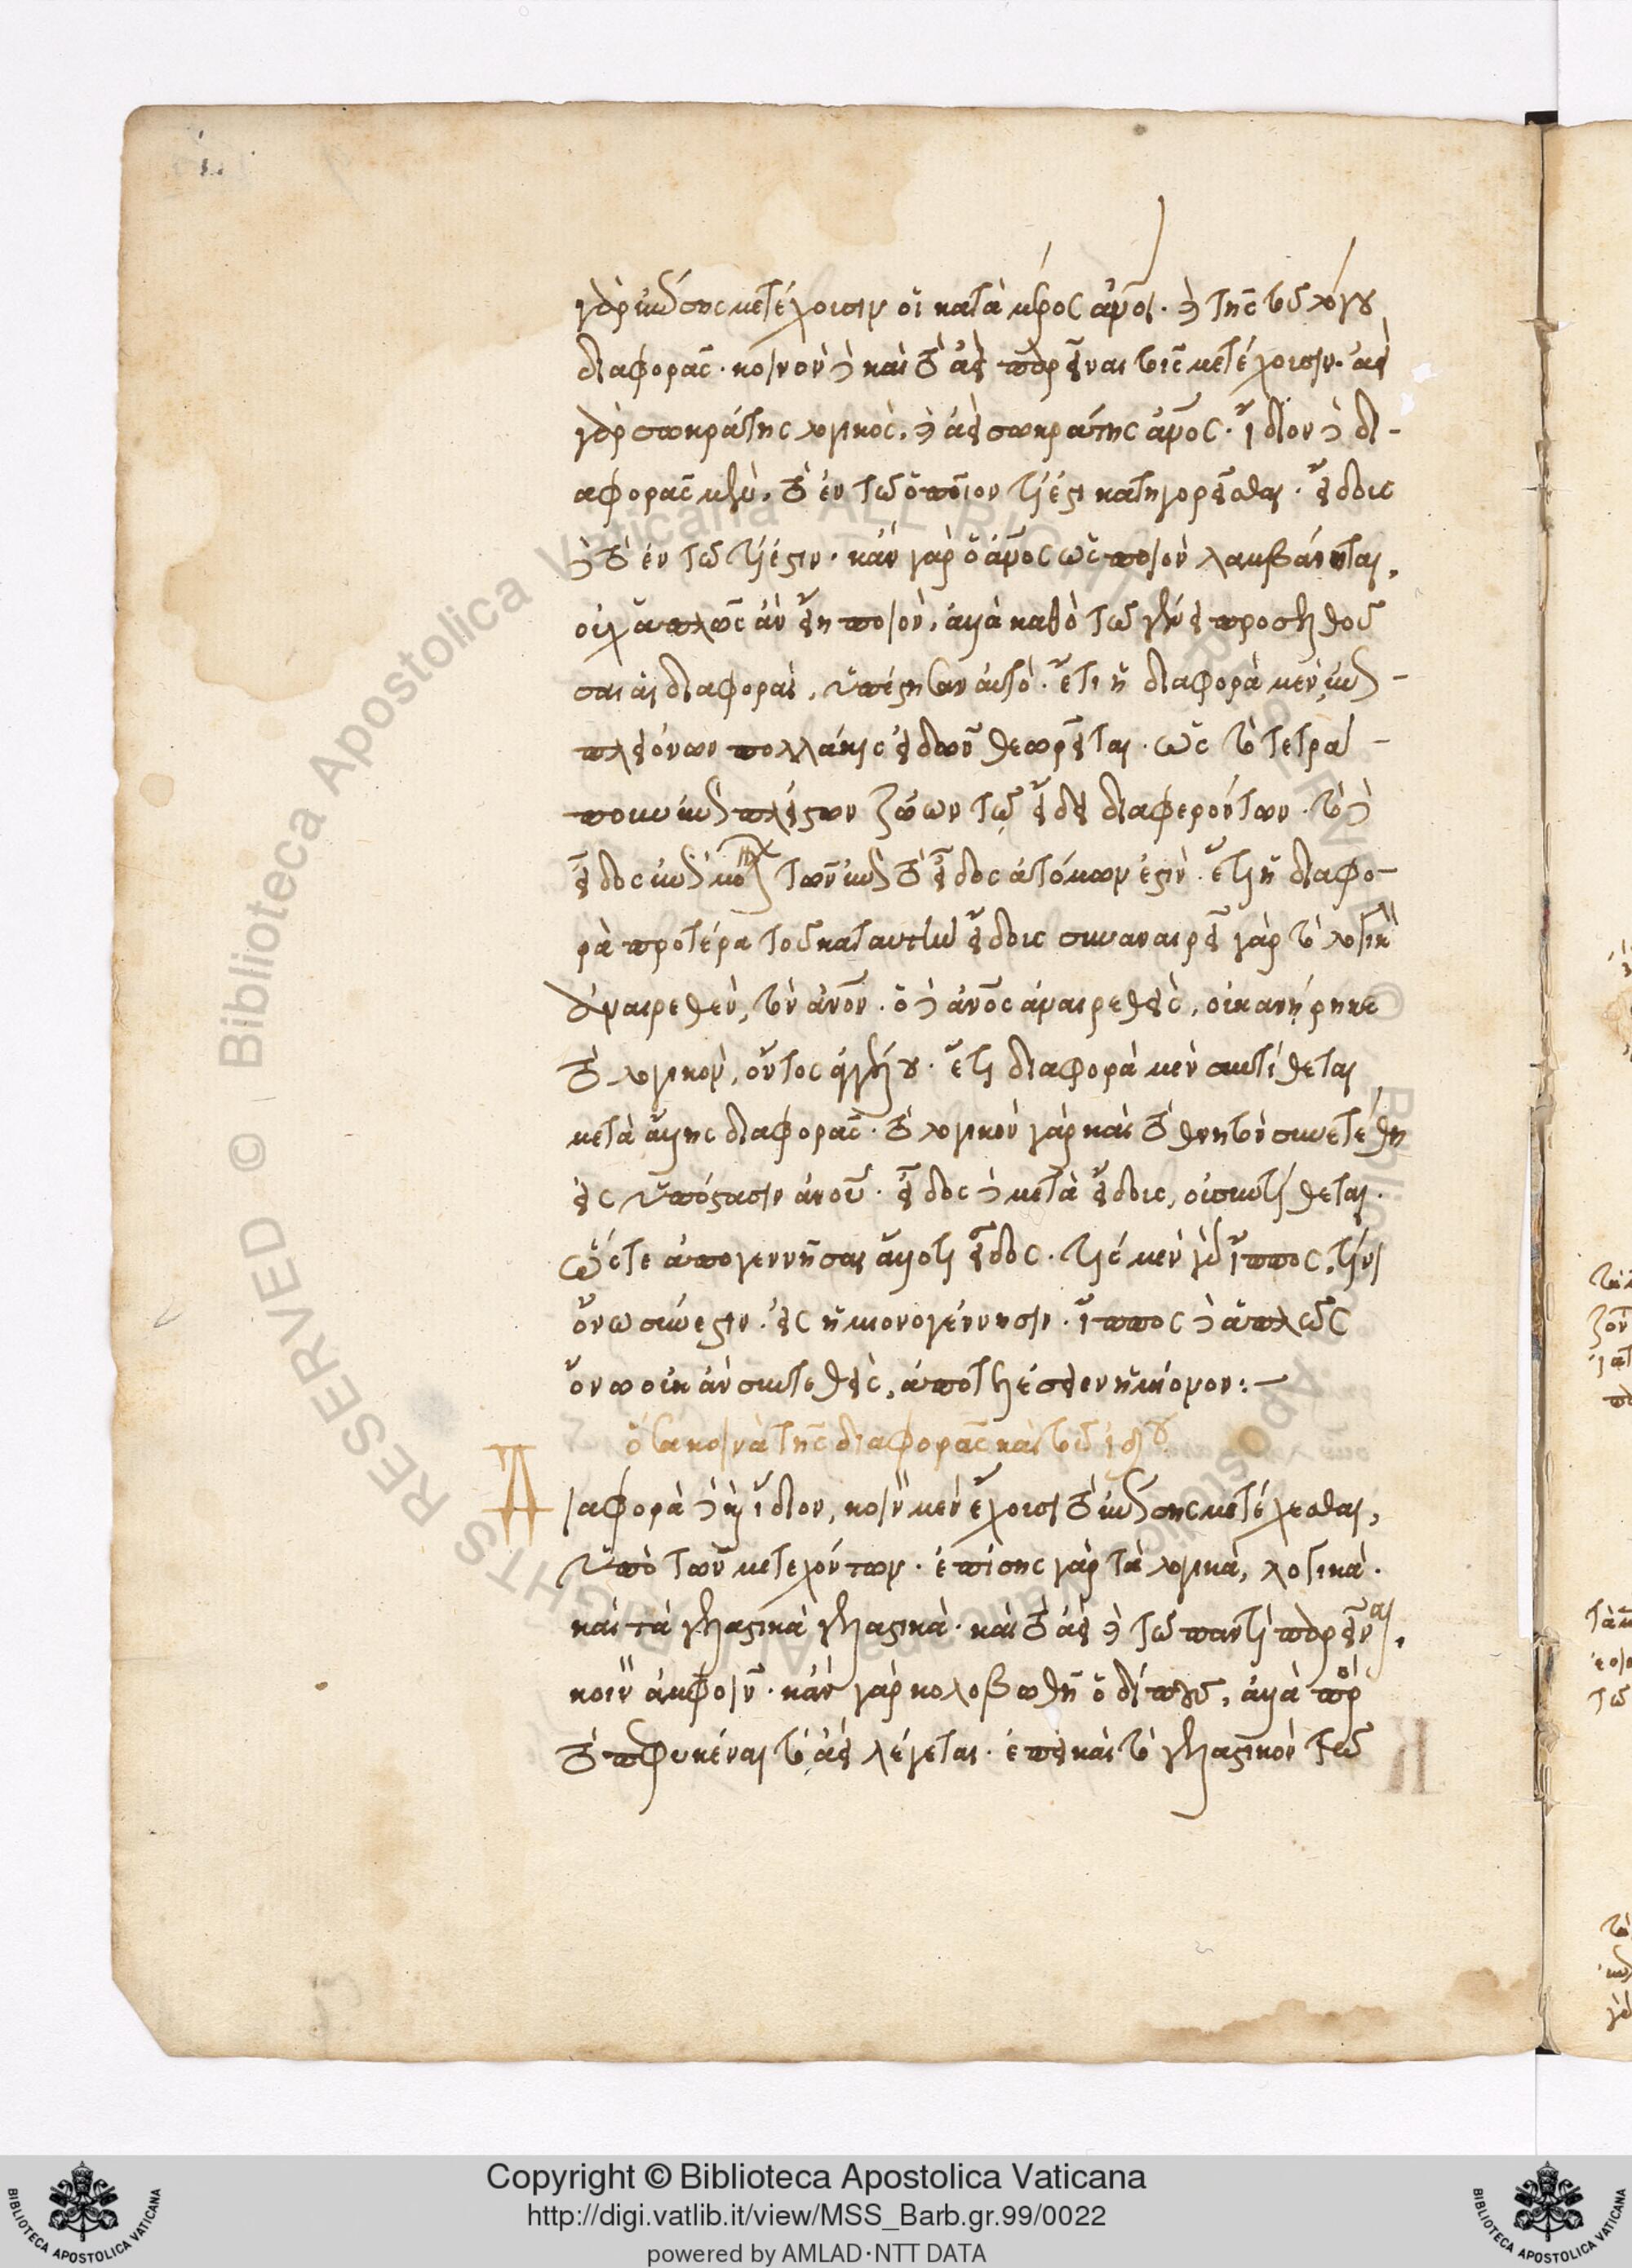 γὰρ ἐπίσης μετέχουσιν οἱ κατὰ μέρος ἄνοι. καὶ τῆς τοῦ λόγου
διαφορᾶς. κοινὸν δὲ καὶ τὸ ἀεὶ παρεῖναι τοῖς μετέχουσιν. ἀεὶ
γὰρ σωκράτης λογικὸς, καὶ ἀεὶ σωκράτης ἄνος. ἴδιον δὲ δι-
αφορᾶς μὲν, τὸ ἐν τῷ ὁποῖον τί ἐστι κατηγορεῖσθαι. εἴδους
δὲ τὸ ἐν τῷ τί ἐστιν. κἂν γὰρ ὁ ἄνος ὡς ποιὸν λαμβάνηται,
οὐχ ἁπλῶς ἂν εἴη ποιὸν, ἀλλὰ καθὸ τῷ γένει προσελθοῦ
σαι αἱ διαφοραὶ, ὑπέστησαν αὐτό. ἔτι ἡ διαφορὰ μὲν, ἐπὶ -
πλειόνων πολλάκις εἰδῶν θεωρεῖται. ὡς τὸ τετρά -
πουν ἐπὶ πλείστων ζώων τῷ εἴδει διαφερόντων. τὸ δὲ
εἶδος ἐπὶ μόνων τῶν ἐπὶ τὸ εἶδος ἀτόμων ἐστὶν. ἔτι ἡ διαφο-
ρὰ προτέρα τοῦ κατ αυτὴν εἴδους συναναιρεῖ γὰρ τὸ λογικὸν
ἀναιρεθὲν, τὸν ἄνον. ὁ δὲ ἄνος ἀναιρεθεὶς, οὐκ ἀνῄρηκε
τὸ λογικὸν, ὄντος ἀγγέλου. ἔτι διαφορὰ μὲν συντίθεται
μετὰ ἄλλης διαφορᾶς. τὸ λογικὸν γὰρ καὶ τὸ θνητὸν συνετέθη
εἰς ὑπόστασιν ἄνου. εἶδος δὲ μετὰ εἴδους, οὐ συντίθεται.
ὥστε ἀπογεννῆσαι ἄλλο τι εἶδος. τὶς μὲν γὰρ ἵππος, τινὶ
ὄνῳ σύνεστιν. εἰς ἡμιόνου γέννησιν. ἵππος δὲ ἁπλῶς
ὄνῳ οὐκ ἂν συντεθεὶς, ἀποτελέσειεν ἡμίονον:-
ὅσα κοινὰ τῆς διαφορᾶς καὶ τοῦ ἰδίου
Διαφορὰ δὲ καὶ ἴδιον, κοινὸν μὲν ἔχουσι τὸ ἐπίσης μετέχεσθαι,
ὑπὸ τῶν μετεχόντων. ἐπίσης γὰρ τὰ λογικὰ, λογικὰ.
καὶ τὰ γελαστικὰ γελαστικὰ. καὶ τὸ ἀεὶ καὶ τῷ παντὶ παρεῖναι,
κοινὸν ἀμφοῖν. κἂν γὰρ κολοβωθῇ ὁ δίπους, ἀλλὰ πρὸς
τὸ πεφυκέναι τὸ ἀεὶ λέγεται. ἐπεὶ καὶ τὸ γελαστικὸν τῷ
Copyright © Biblioteca Apostolica Vaticana
http://digi.vatlib.it/view/MSS_Barb.gr.99/0022
powered by AMLAD·NTT DATA